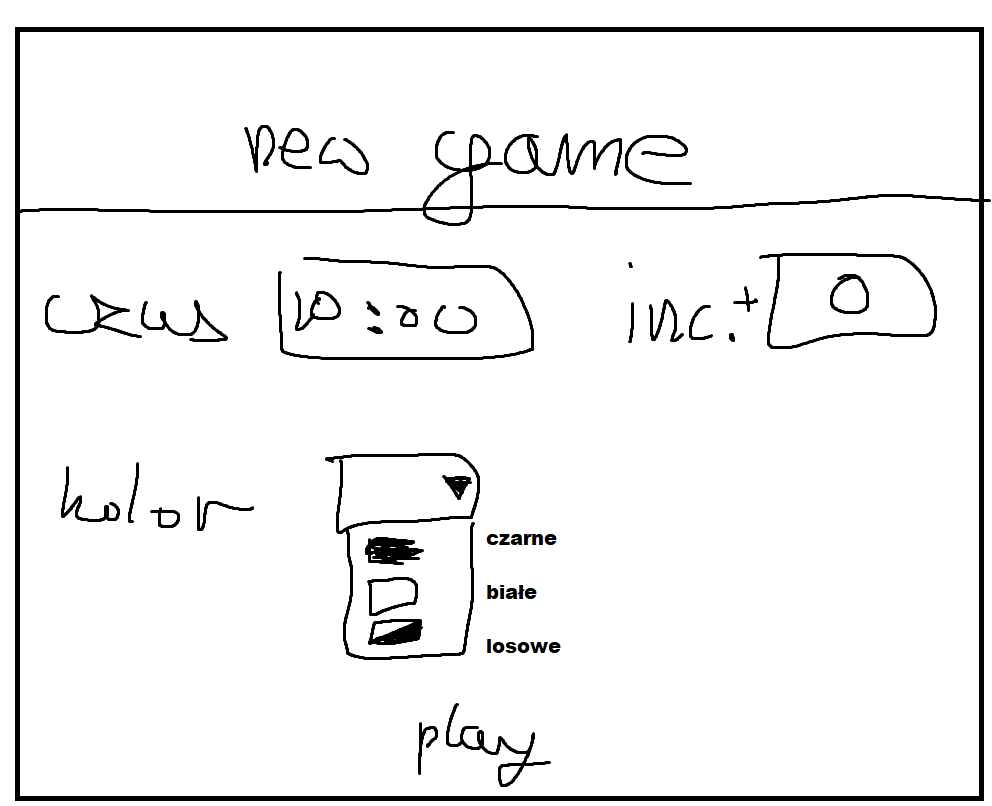 new game
czas 10:00 inc.+ 0
kolor
czarne
białe
losowe
play